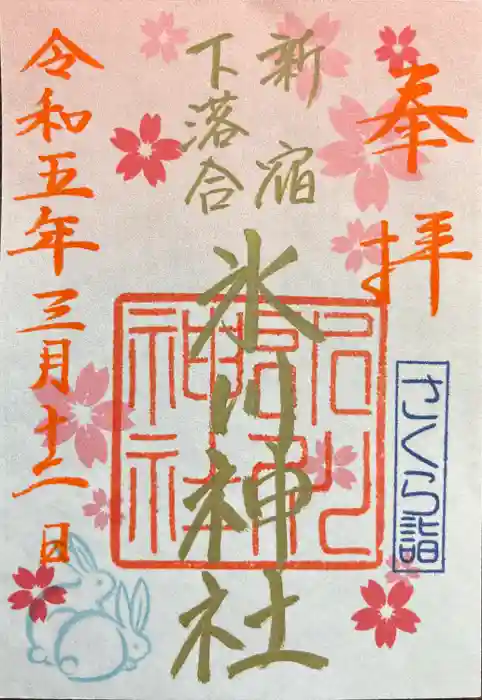 奉拝
新宿
下落合
氷川神社
令和五年三月十二日
さくら詣
氷川神社